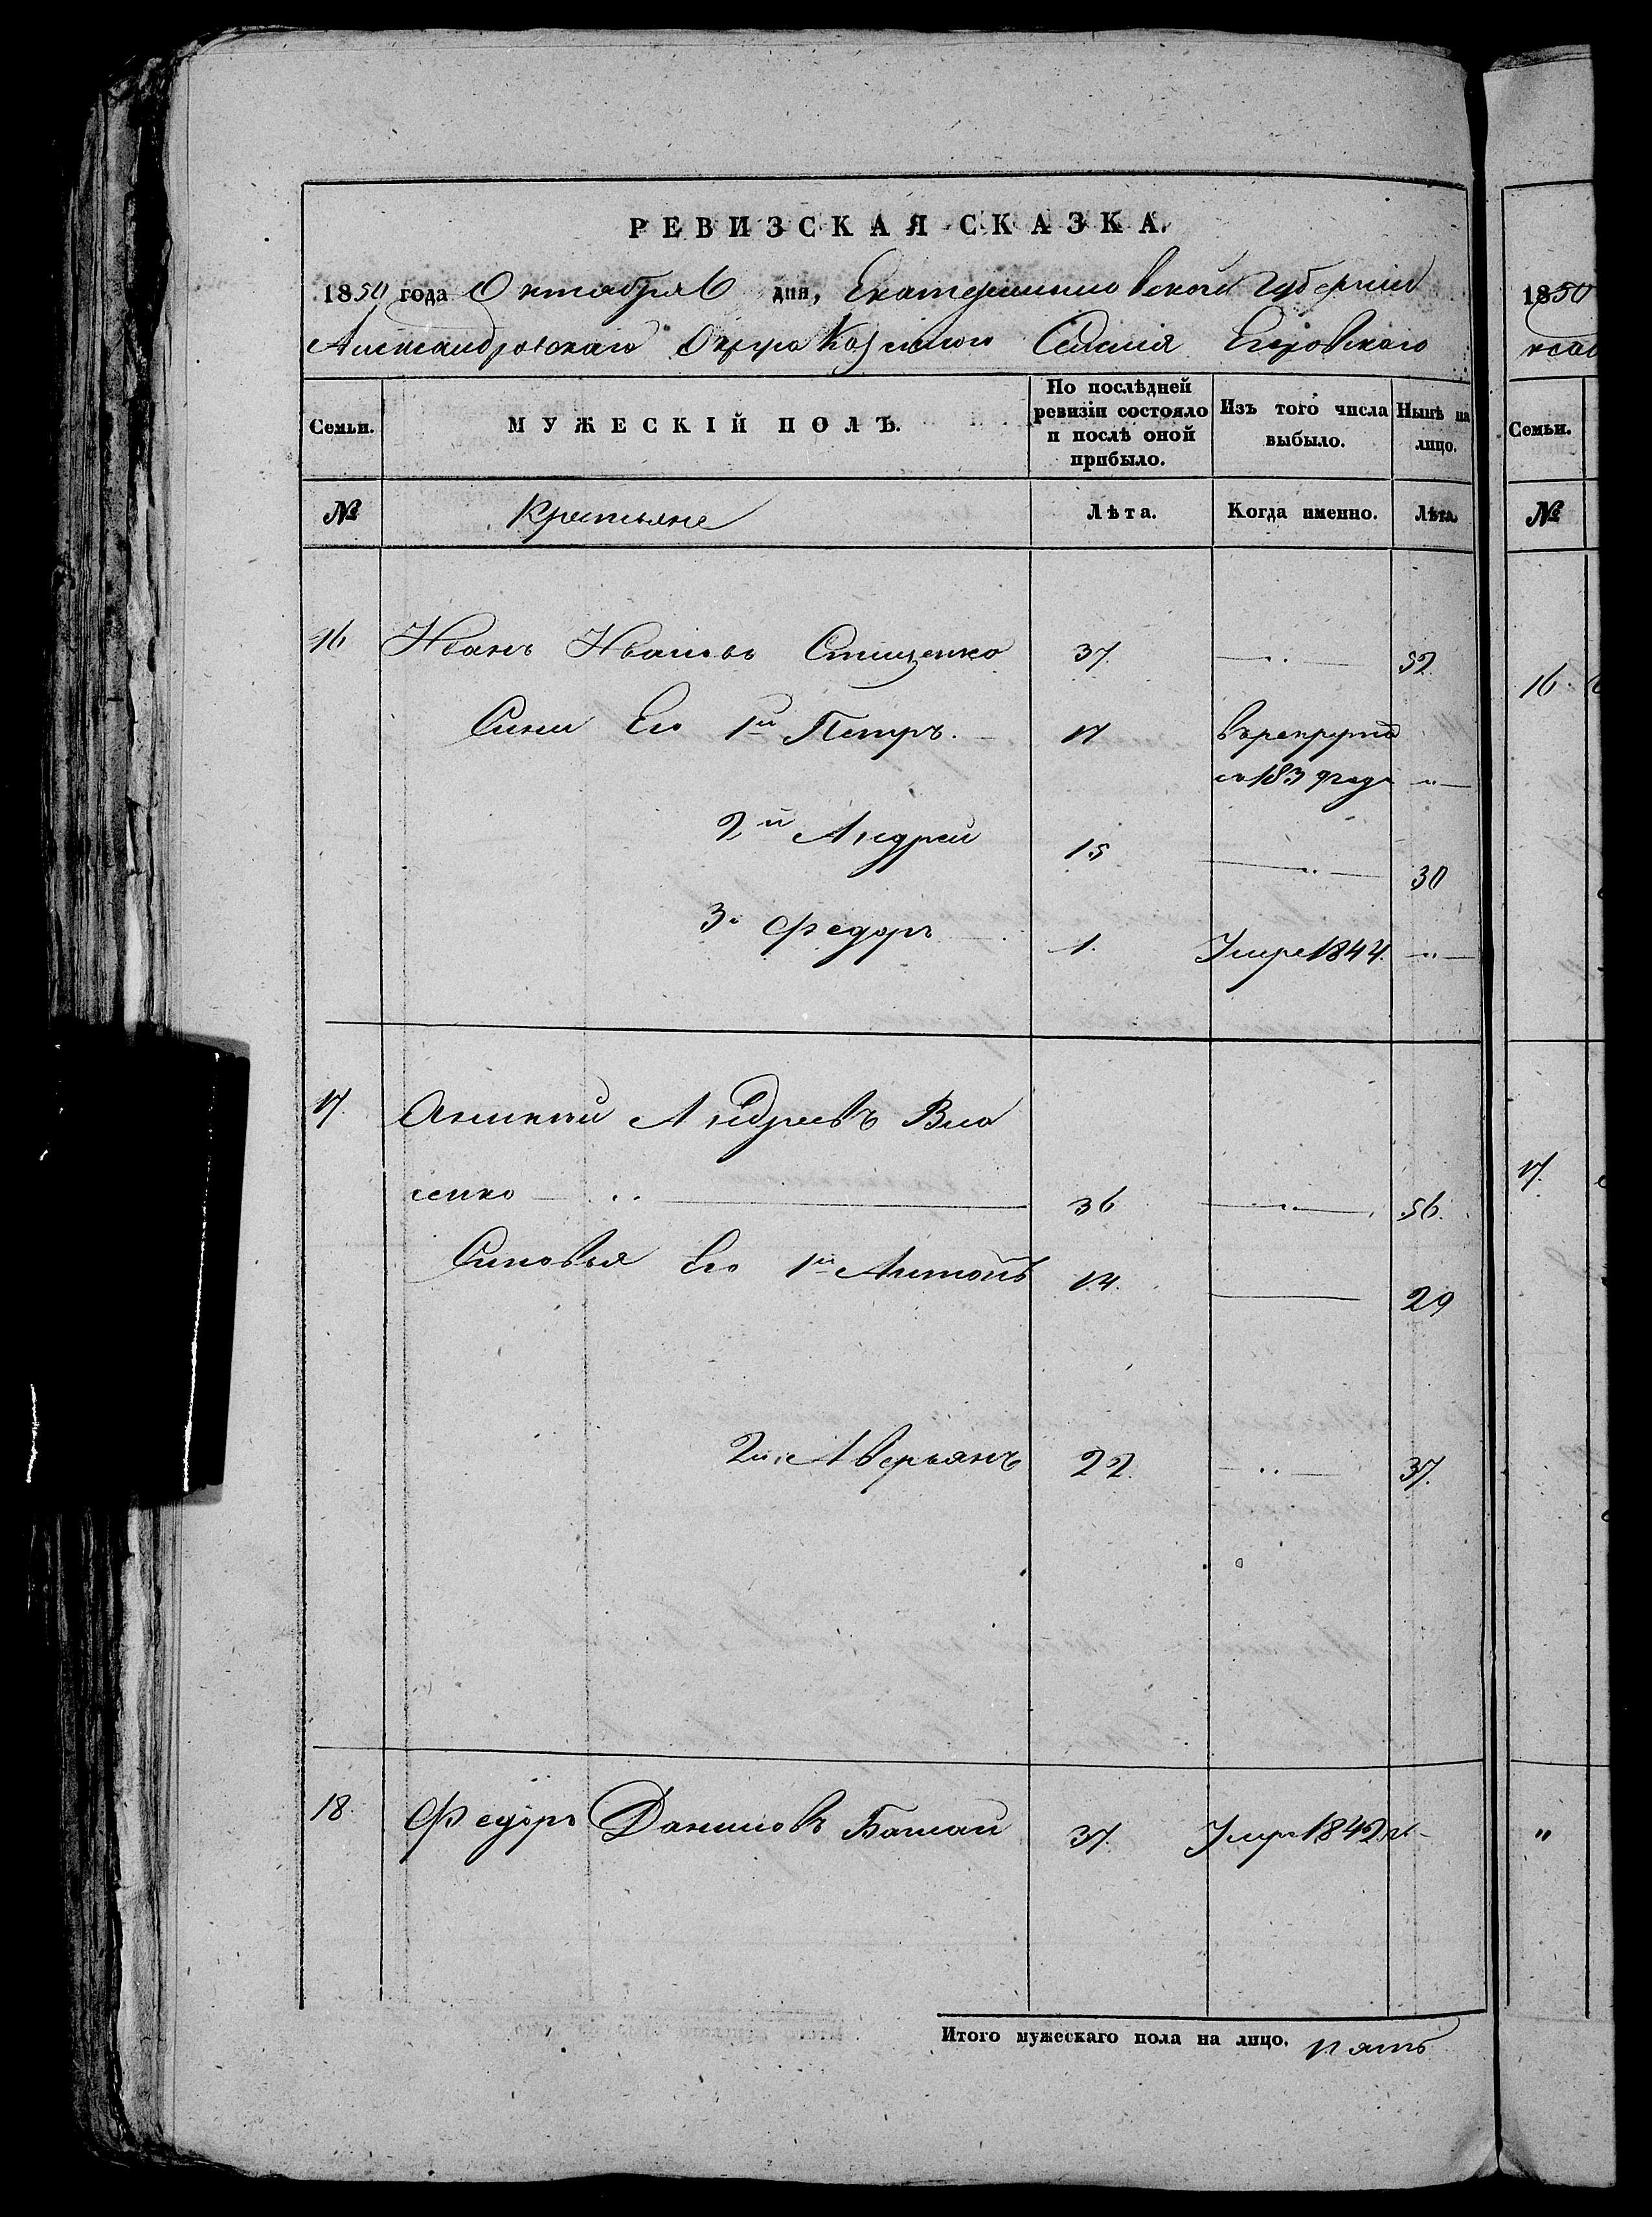 РЕВИЗСКАЯ СКАЗКА.
1850 года Октября 6 дня, Екатеринославской Губернии
Александровского Округа Казенного Селенія Егоровскаго
Семьи.
МУЖЕСКІЙ ПОЛЪ.
По послѣдней ревизіи состояло и послѣ оной прибыло.
Изъ того числа выбыло.
Нынѣ на лицо.
№ Крестьяне Лѣта. Когда именно. Лѣта.
16 Иванъ Ивановъ Стищенко 37. —〃— 52.
Сини Его 1й Петръ. 17 въ рекрути
въ 1839 году —〃—
2й Андрей 15 —〃— 30
3й Федоръ 1. Умре 1844. —〃—
17. Андреевъ Вла
сенко —〃— 36 —〃— 56.
Синовья Его 1й Антонъ 14. — 29
2й Аверьянъ 22. —〃— 37.
18. Федоръ Даниловъ 37. Умре 1842
Итого мужескаго пола на лицо. пять
1850
Семьи.
№
16
17.
〃